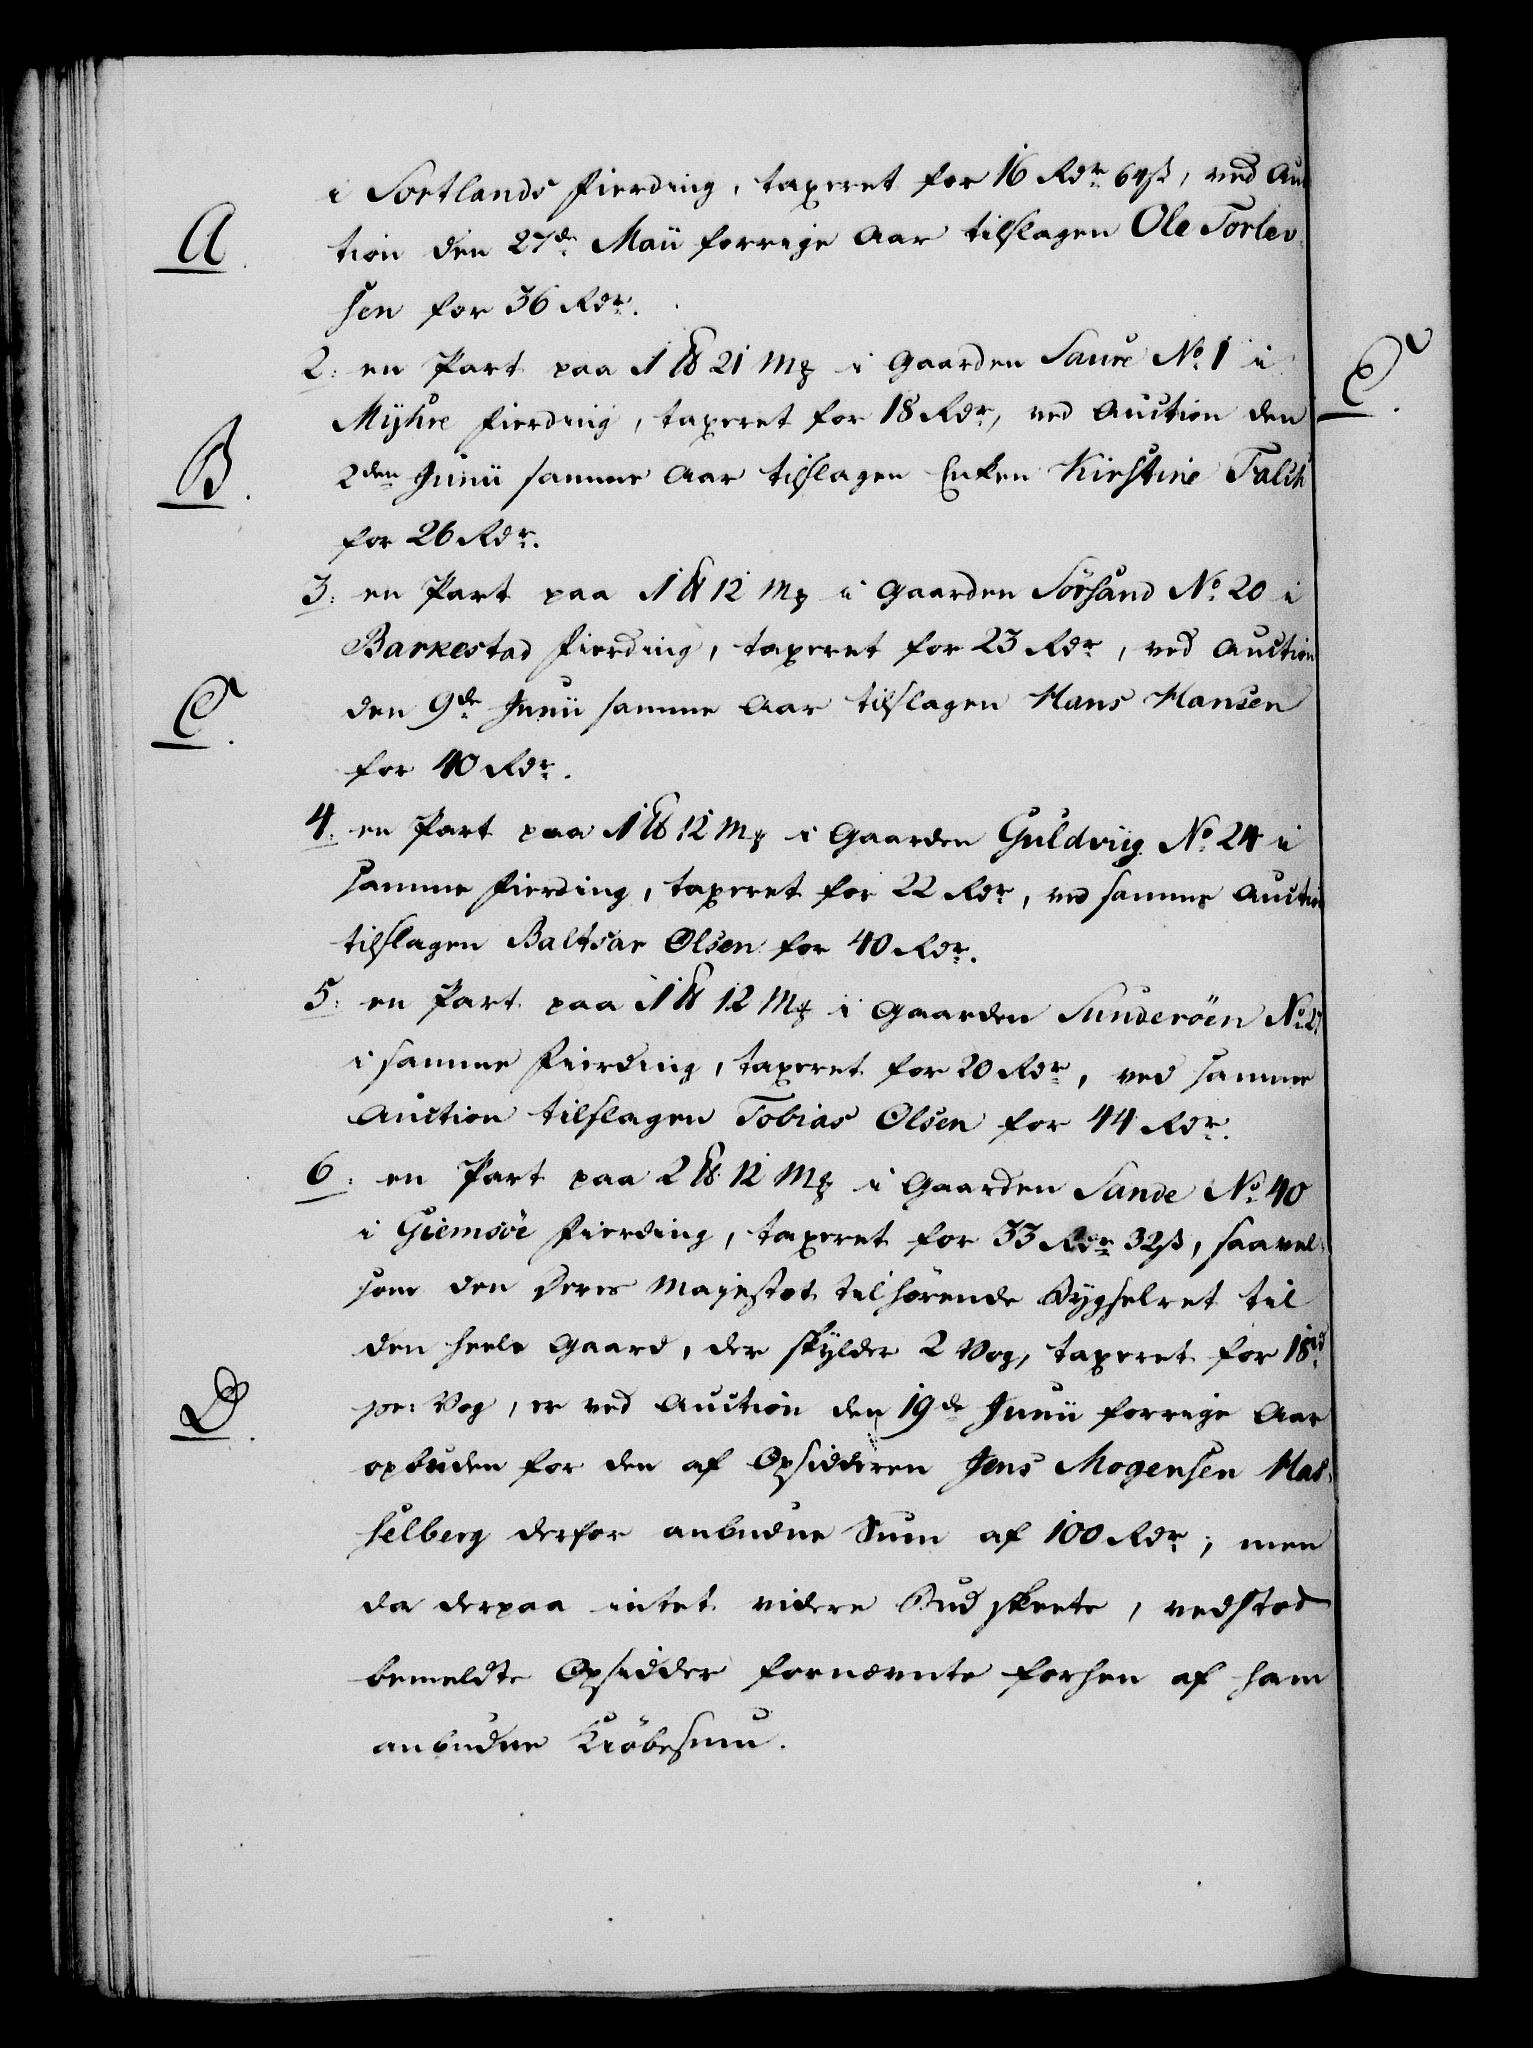 i Sortlands Fierding, taxeret for 16 Rdr 64 ß, ved Auc
A. tion den 27de Maii forrige Aar tilslagen Ole Torlev-
sen for 36 Rdr.
2: en Part paa 1 ℔ 21 Mk i Gaarden Saure No 1 i
Myhre Fierding, taxeret for 18 Rdr, ved Auction den
B. 2den Junii samme Aar tilslagen Enken Kirstine Falch
for 26 Rdr.
3: en Part paa 1 ℔ 12 Mk i Gaarden Sörsand No 20 i
Barkestad Fierding, taxeret for 23 Rdr, ved Auction
C. den 9de Junii samme Aar tilslagen Hans Hansen
for 40 Rdr.
4: en Part paa 1 ℔ 12 Mk i Gaarden Guldviig No 24 i
samme Fierding, taxeret for 22 Rdr, ved samme Auction
tilslagen Baltsar Olsen for 40 Rdr.
5: en Part paa 1 ℔ 12 Mk i Gaarden Sunderöen No 27
i samme Fierding, taxeret for 20 Rdr, ved samme
Auction tilslagen Tobias Olsen for 44 Rdr.
6: en Part paa 2 ℔ 12 Mk i Gaarden Sande No 40
i Giemsöe Fierding, taxeret for 33 Rdr 32 ß, saavel-
som den Deres Majestæt tilhörende Bygselret til
den heele Gaard, der skylder 2 Vog, taxeret for 18 rd
D. pr: Vog, er ved Auction den 19de Junii forrige Aar
opbuden for den af Opsidderen Jens Mogensen Has-
selberg derfor anbudne Sum af 100 Rdr; men
da derpaa intet videre Bud skeete, vedstod
bemeldte Opsidder fornævnte forhen af ham
anbudne Kiöbesum.
E.